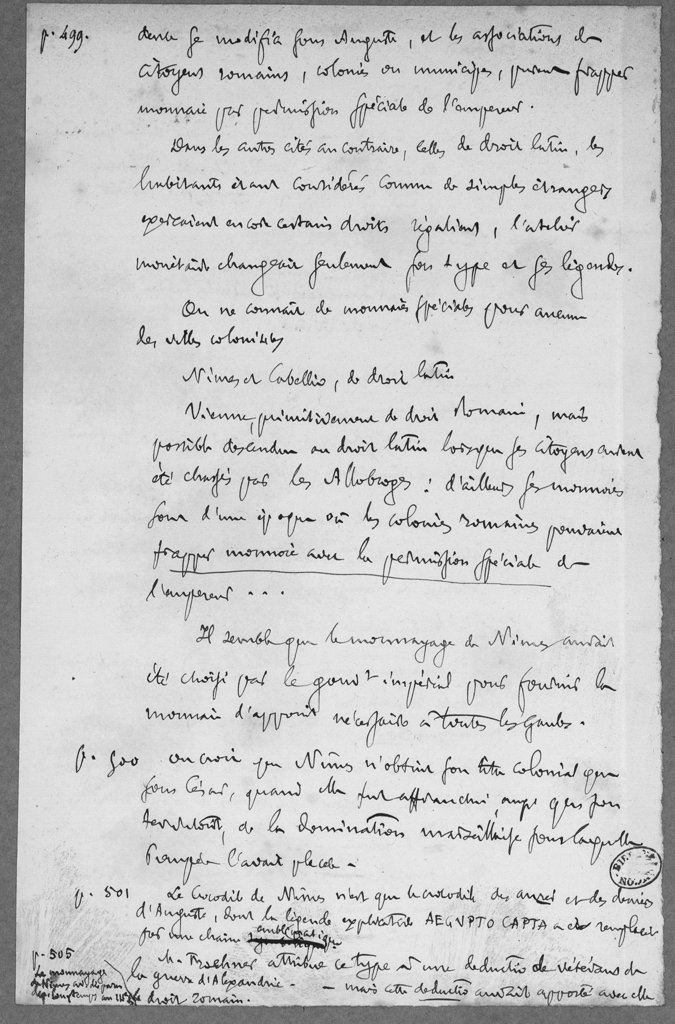 p. 499. dence se modifia sous Auguste, et les associations de
citoyens romains, colonies ou municipes, purent frapper
monnaie par permission spéciale de l'empereur.
Dans les autres cités au contraire, celles de droit latin, les
habitants étant considérés comme de simples étrangers
exerçaient encore certains droits régaliens, l'atelier
monétaire changeait seulement son type et ses légendes.
On ne connait de monnaies spéciales pour aucune
des villes colonisées
Nîmes et Cabellio, de droit latin
Vienne, primitivement de droit Romain, mais
possible descendue au droit latin lorsque ses citoyens eurent
été chassés par les Allobroges : d'ailleurs ses monnaies
sont d'une époque où les colonies romaines pouvaient
frapper monnaie avec la permission spéciale de
l'empereur ...
Il semble que le monnayage de Nîmes aurait
été choisi par le gouvt impérial pour fournir la
monnaie d'appoint nécessaire à toutes les Gaules.
p. 500 on croit que Nîmes n'obtint son titre colonial que
sous César, quand elle fut affranchie, ainsi que son
territoire, de la domination marseillaise sous laquelle
Pompée l'avait placée.
p. 501 Le Crocodile de Nîmes n'est que le crocodile des aurei et des deniers
d'Auguste, dont la légende explicative AEGVPTO CAPTA a été remplacée
par une chaîne emblématique
M. Froehner attribue ce type à une deductio de vétérans de
la guerre d'Alexandrie. — mais cette deductio aurait apporté avec elle
le droit romain.
p. 505
Le monnayage
de Nîmes